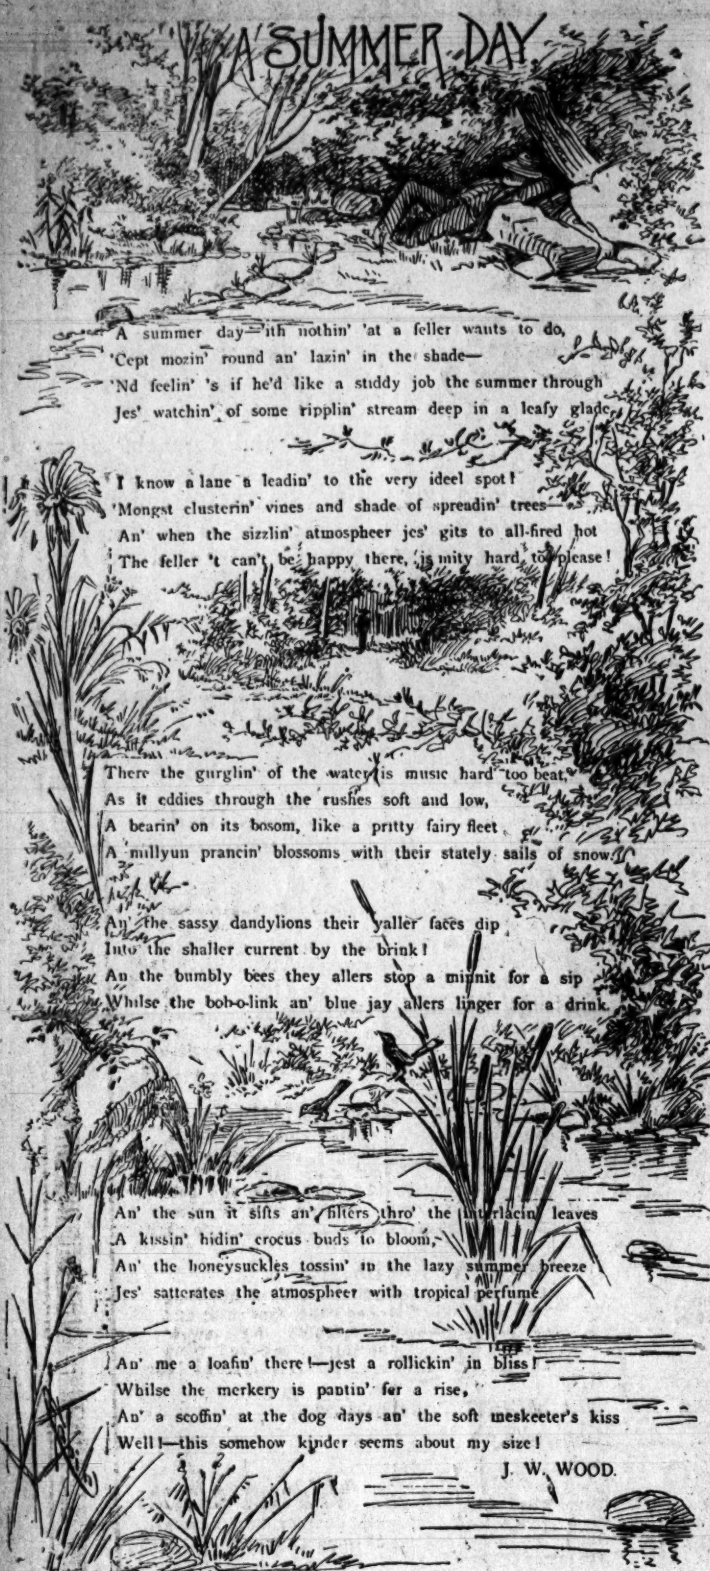 A SUMMER DAY.
A summer day—'ith nothin' 'at a feller wants to do,
'Cept mozin' round an' lazin' in the shade—
'Nd feelin' 's if he'd like a stiddy job the summer through
Jes' watchin' of some ripplin' stream deep in a leafy glade.
I know a lane a leadin' to the very ideel spot!
'Mongst clusterin' vines and shade of spreadin' trees—
An' when the sizzlin' atmospheer jes' gits to all-fired hot
The feller 't can't be happy there, is mity hard to please!
There the gurglin' of the water is music hard too beat,
As it eddies through the rushes soft and low,
A bearin' on its bosom, like a pritty fairy fleet
A millyun prancin' blossoms with their stately sails of snow.
An' the sassy dandylions their yaller faces dip
Into the shaller current by the brink!
An the bumbly bees they allers stop a minnit for a sip
Whilse the bob-o-link an' blue jay allers linger for a drink.
An' the sun it sifts an' filters thro' the interlacin' leaves
A kissin' hidin' crocus buds to bloom,
An' the honeysuckles tossin' in the lazy summer breeze
Jes' satterates the atmospheer with tropical perfume
An' me a loafin' there!—jest a rollickin' in bliss!
Whilse the merkery is pantin' fer a rise,
An' a scoffin' at the dog days an' the soft meskeeter's kiss
Well!—this somehow kinder seems about my size!
J. W. WOOD.